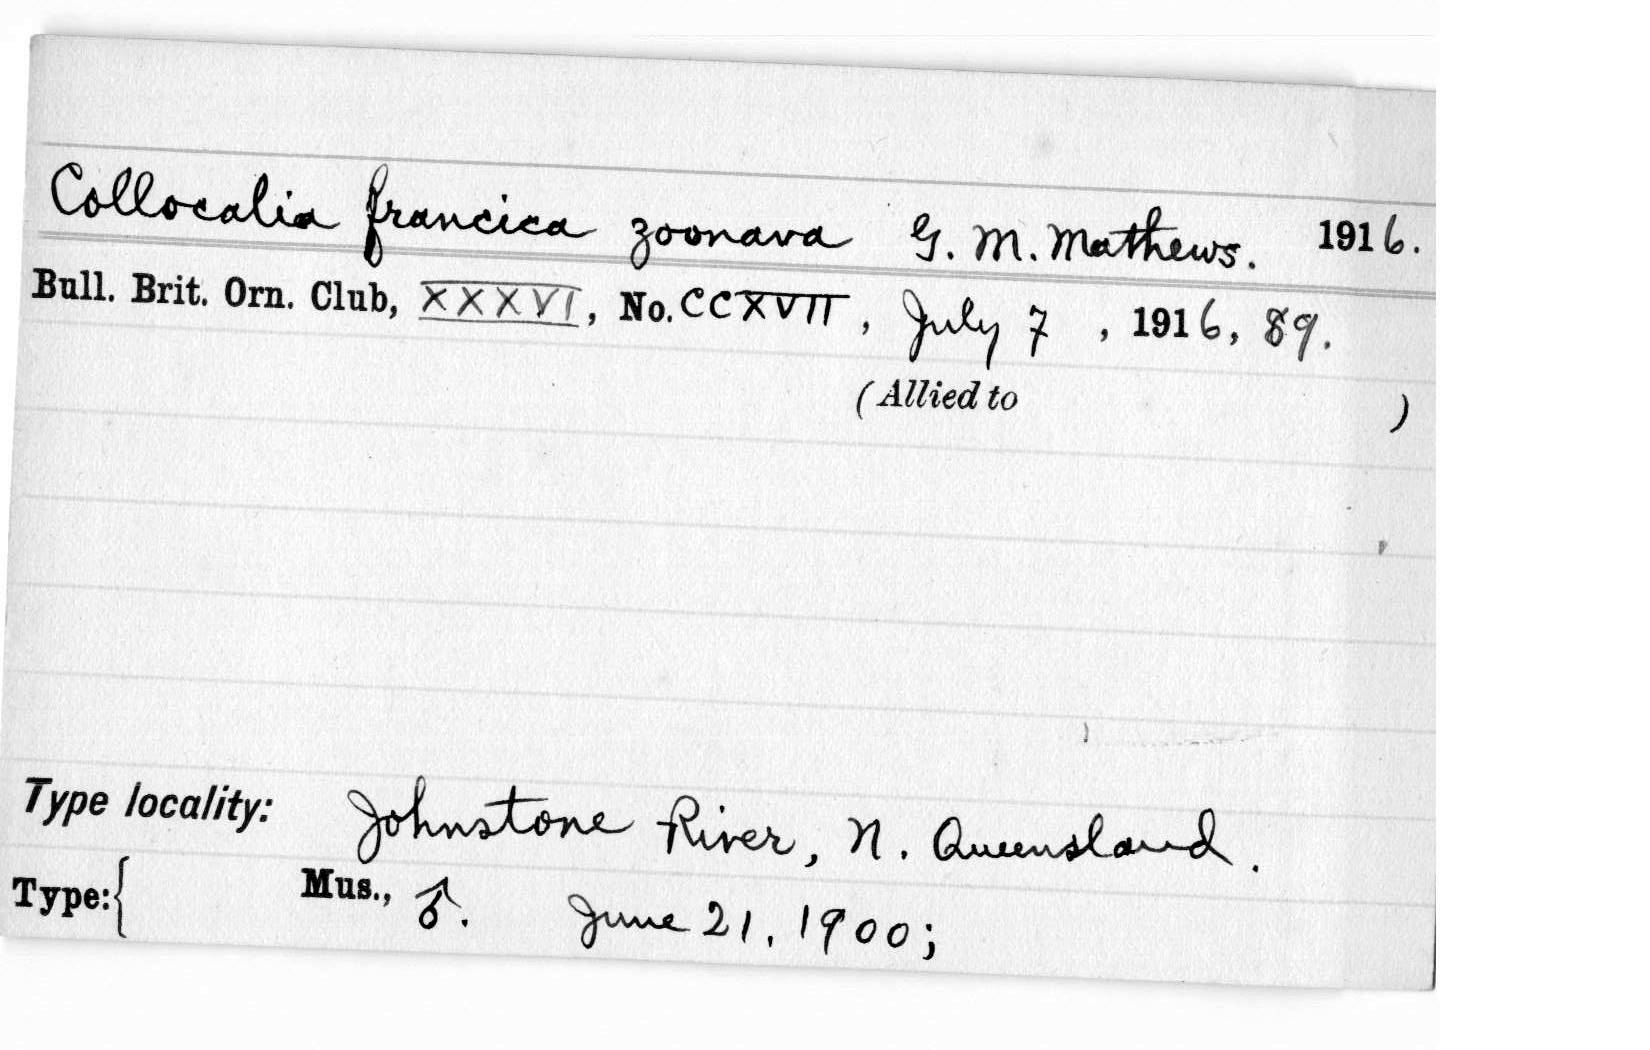 Collocalia francica zoonava G. M. Mathews. 1916.
Bull. Brit. Orn. Club, XXXVI, No. CCXVII, July 7, 1916, 89.
(Allied to )
Type locality: Johnstone River, N. Queensland.
Type:{ Mus., ♂. June 21, 1900;